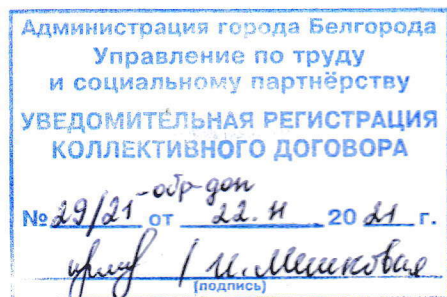 Администрация города Белгорода
Управление по труду
и социальному партнёрству
УВЕДОМИТЕЛЬНАЯ РЕГИСТРАЦИЯ
КОЛЛЕКТИВНОГО ДОГОВОРА
-обр-доп
№ 29/21 от 22. 11 20 21 г.
/ И. Мешковая
(подпись)